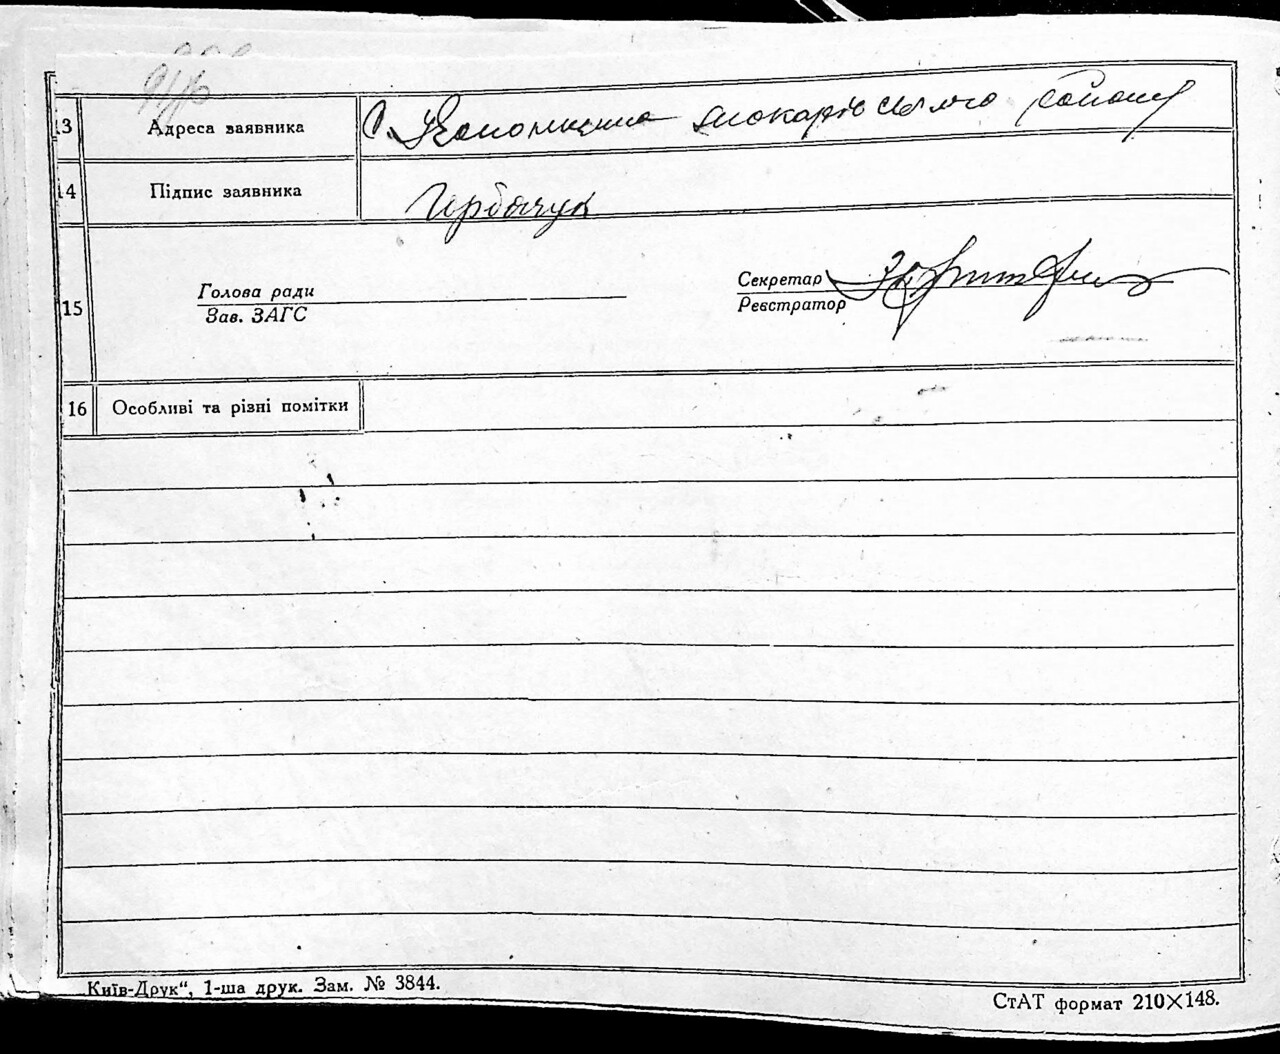 13 Адреса заявника С. Яблонивка Макарівського району
14 Підпис заявника Горбачук
15 Голова ради Секретар
Зав. ЗАГС Реєстратор
16 Особливі та різні помітки
Київ-Друк“, 1-ша друк. Зам. № 3844.
СтАТ формат 210×148.